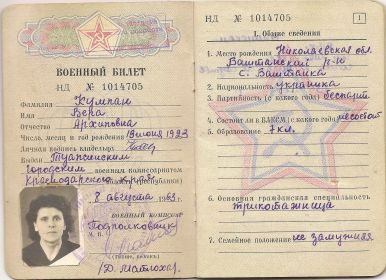 ВОЕННЫЙ БИЛЕТ
НД № 1014705
Фамилия Кумпан
Имя Вера
Отчество Архиповна
Число, месяц и год рождения 1923
Личная подпись владельца
Выдан Туапсинским
Городским военным комиссариатом
Краснодарского края
8 августа 1963 г.
ВОЕННЫЙ КОМИССАР
Подполковник
М. П.
НД № 1014705
1
I. Общие сведения
1. Место рождения Николаевская обл
Баштанский р-н
с. Баштанка
2. Национальность украинка
3. Партийность (с какого года) беспарт.
4. Состоит ли в ВЛКСМ (с какого года) не состоит
5. Образование 7 кл.
6. Основная гражданская специальность
трикотажница
7. Семейное положение не замужняя